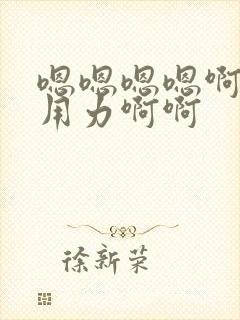 嗯嗯嗯嗯啊
用力啊啊
徐新荣